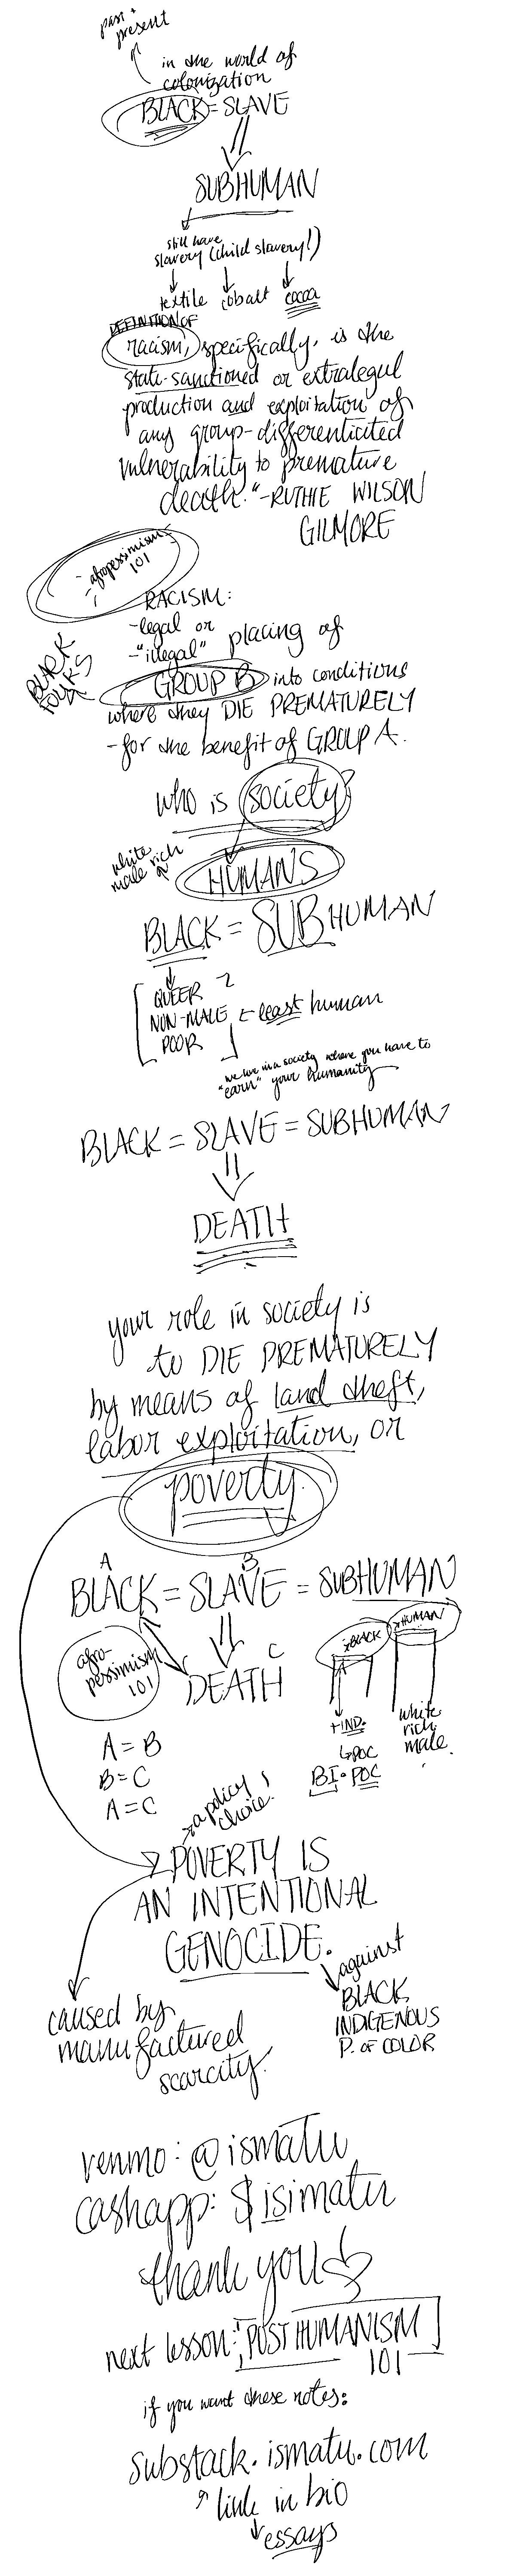 past +
present
in the world of
colonization
BLACK = SLAVE
SUBHUMAN
still have
slavery (child slavery!)
textile cobalt cocoa
DEFINITION OF
racism, specifically, is the
state-sanctioned or extralegal
production and exploitation of
any group-differenticited
vulnerability to premature
death." -RUTHIE WILSON
GILMORE
-afropessimism
101
RACISM:
-legal or
-"illegal" placing of
BLACK
FOLKS
GROUP B into conditions
where they DIE PREMATURELY
-for the benefit of GROUP A.
who is society?
white
male rich
HUMANS
BLACK = SUBHUMAN
QUEER
NON-MALE ← least human
POOR
we live in a society where you have to
"earn" your humanity
BLACK = SLAVE = SUBHUMAN
DEATH
your role in society is
to DIE PREMATURELY
by means of land theft,
labor exploitation, or
poverty.
A B
BLACK = SLAVE = SUBHUMAN
afro-
pessimism
101
C
DEATH
BLACK HUMAN
+IND.
↳POC
BI•POC
white
rich
male.
A = B
B = C
A = C
a policy
choice!
POVERTY IS
AN INTENTIONAL
GENOCIDE.
against
BLACK
INDIGENOUS
P. OF COLOR
caused by
manufactured
scarcity.
venmo: @ismatu
cashapp: $isimatu
thank you
next lesson: [POSTHUMANISM]
101
if you want these notes:
substack.ismatu.com
link in bio
essays